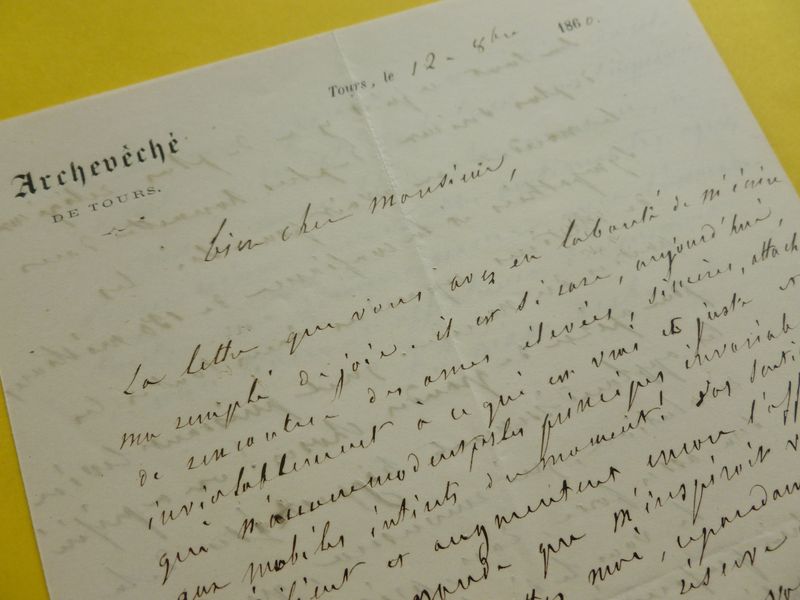 Tours, le 12 - 8bre 1860.
Archevêché
DE TOURS.
bien cher monsieur,
La lettre que vous avez eu la bonté de m'écrire
ma remplé de joie. il est si rare, aujourd'hui,
de rencontrer des ames élevées, sincères, attach
inviolablement à ce qui est vrai et juste et
qui n'accommodent pas les principes invariab
aux mobiles intérêts du moment! Vos senti
et augmentent encore l'aff
que m'inspiroit v
moi, cependan
réserve